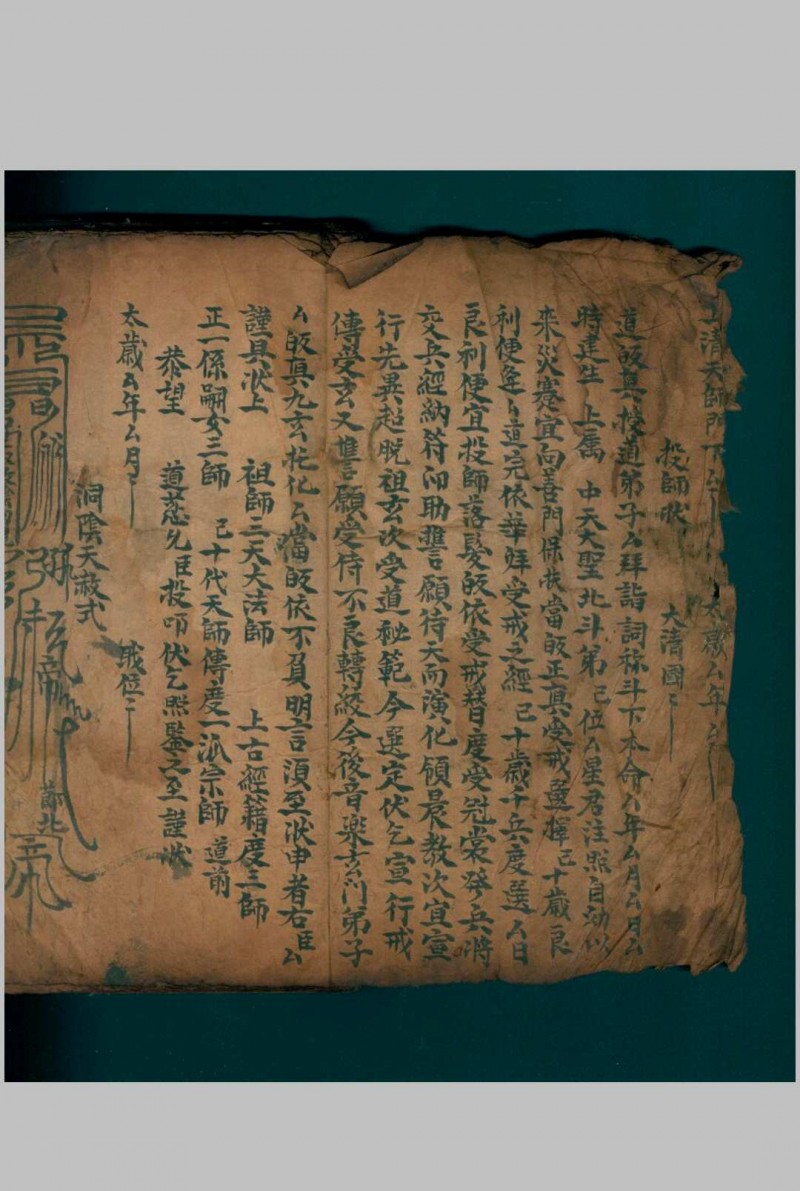 上清天師門下 太歲厶年厶
投師狀 大清國
道皈真投道弟子厶拜詣詞称斗下本命厶年厶月厶日厶
時建生 上屬 中天大聖北斗第己位厶星君注照自幼以
來災蹇宜向善門保扶當皈正真受戒選擇己十歲良
利便逢道完依華拜受戒之經己十歲千兵度選厶日
良利便宜投師落髮皈依受戒替度受冠裳發兵將
交兵經納符印助誓願待天而演化領晨教次宜宣
行先異超脫祖玄次受道秘範今選定伏乞宣行戒
傳受玄又誓願受侍不良轉後今後音樂玄门弟子
厶皈真九玄托化厶當皈依不負明言須至狀申者右臣厶
謹具狀上 祖師三天大法師 上古經籍度三師
正一係嗣女三師 己十代天師傳度一派宗師 道前
恭望 道慈允臣投叩伏乞照鑒之至謹狀
太歲厶年厶月 職位
洞陰天赦式